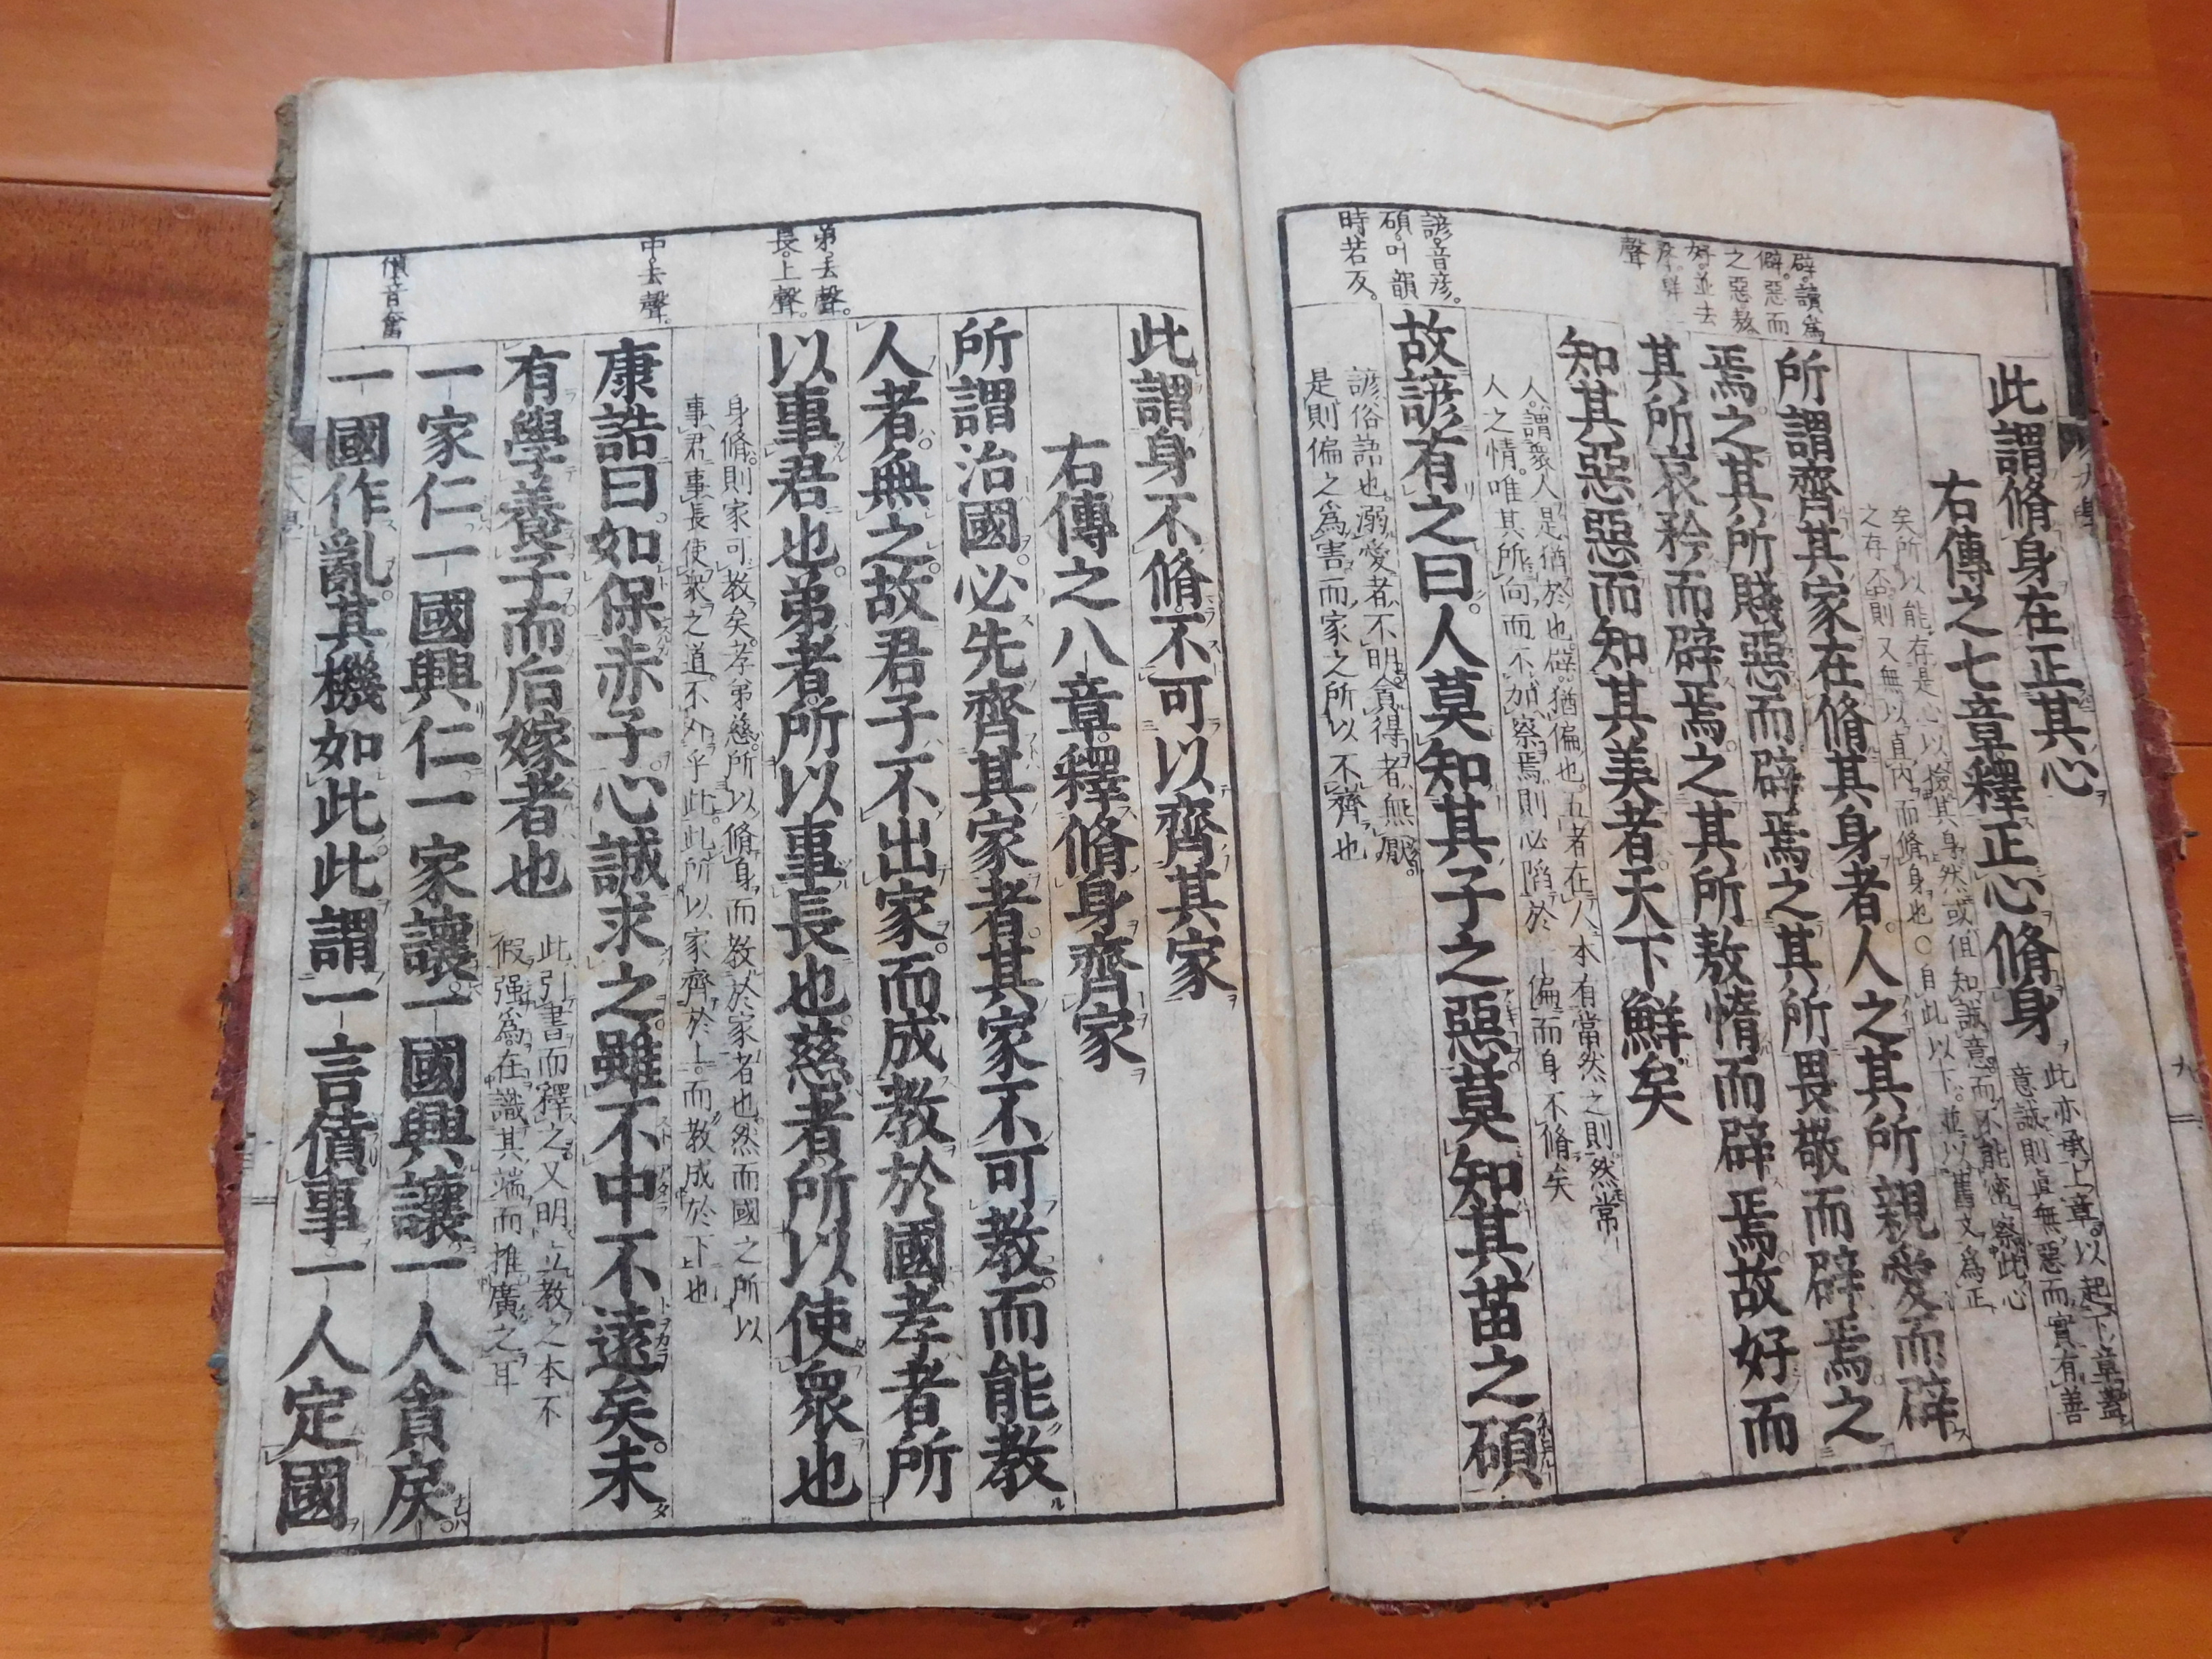 辟讀爲
僻惡而
之惡敖
好並去
聲鮮上
聲
此謂脩身在正其心
右傳之七章釋正心脩身
此亦承上章以起下章蓋
意誠則眞無惡而實有善
矣所以能存是心以檢其身然或但知誠意而不能密察此心
之存否則又無以直內而脩身也○自此以下並以舊文爲正
所謂齊其家在脩其身者人之其所親愛而辟
焉之其所賤惡而辟焉之其所畏敬而辟焉之
其所哀矜而辟焉之其所敖惰而辟焉故好而
知其惡惡而知其美者天下鮮矣
人謂衆人是猶於也辟猶偏也五者在人本有當然之則然常
人之情唯其所向而不加察焉則必陷於一偏而身不脩矣
諺音彦
碩叶韻
時若反
故諺有之曰人莫知其子之惡莫知其苗之碩
諺俗語也溺愛者不明貪得者無厭
是則偏之爲害而家之所以不齊也
此謂身不脩不可以齊其家
右傳之八章釋脩身齊家
所謂治國必先齊其家者其家不可教而能教
人者無之故君子不出家而成教於國孝者所
弟去聲
長上聲
以事君也弟者所以事長也慈者所以使衆也
身脩則家可教矣孝弟慈所以脩身而教於家者也然而國之所以
事君事長使衆之道不外乎此此所以家齊於上而教成於下也
中去聲
康誥曰如保赤子心誠求之雖不中不遠矣未
有學養子而后嫁者也
此引書而釋之又明立教之本不
假强爲在識其端而推廣之耳
一家仁一國興仁一家讓一國興讓一人貪戾
僨音奮
一國作亂其機如此此謂一言僨事一人定國